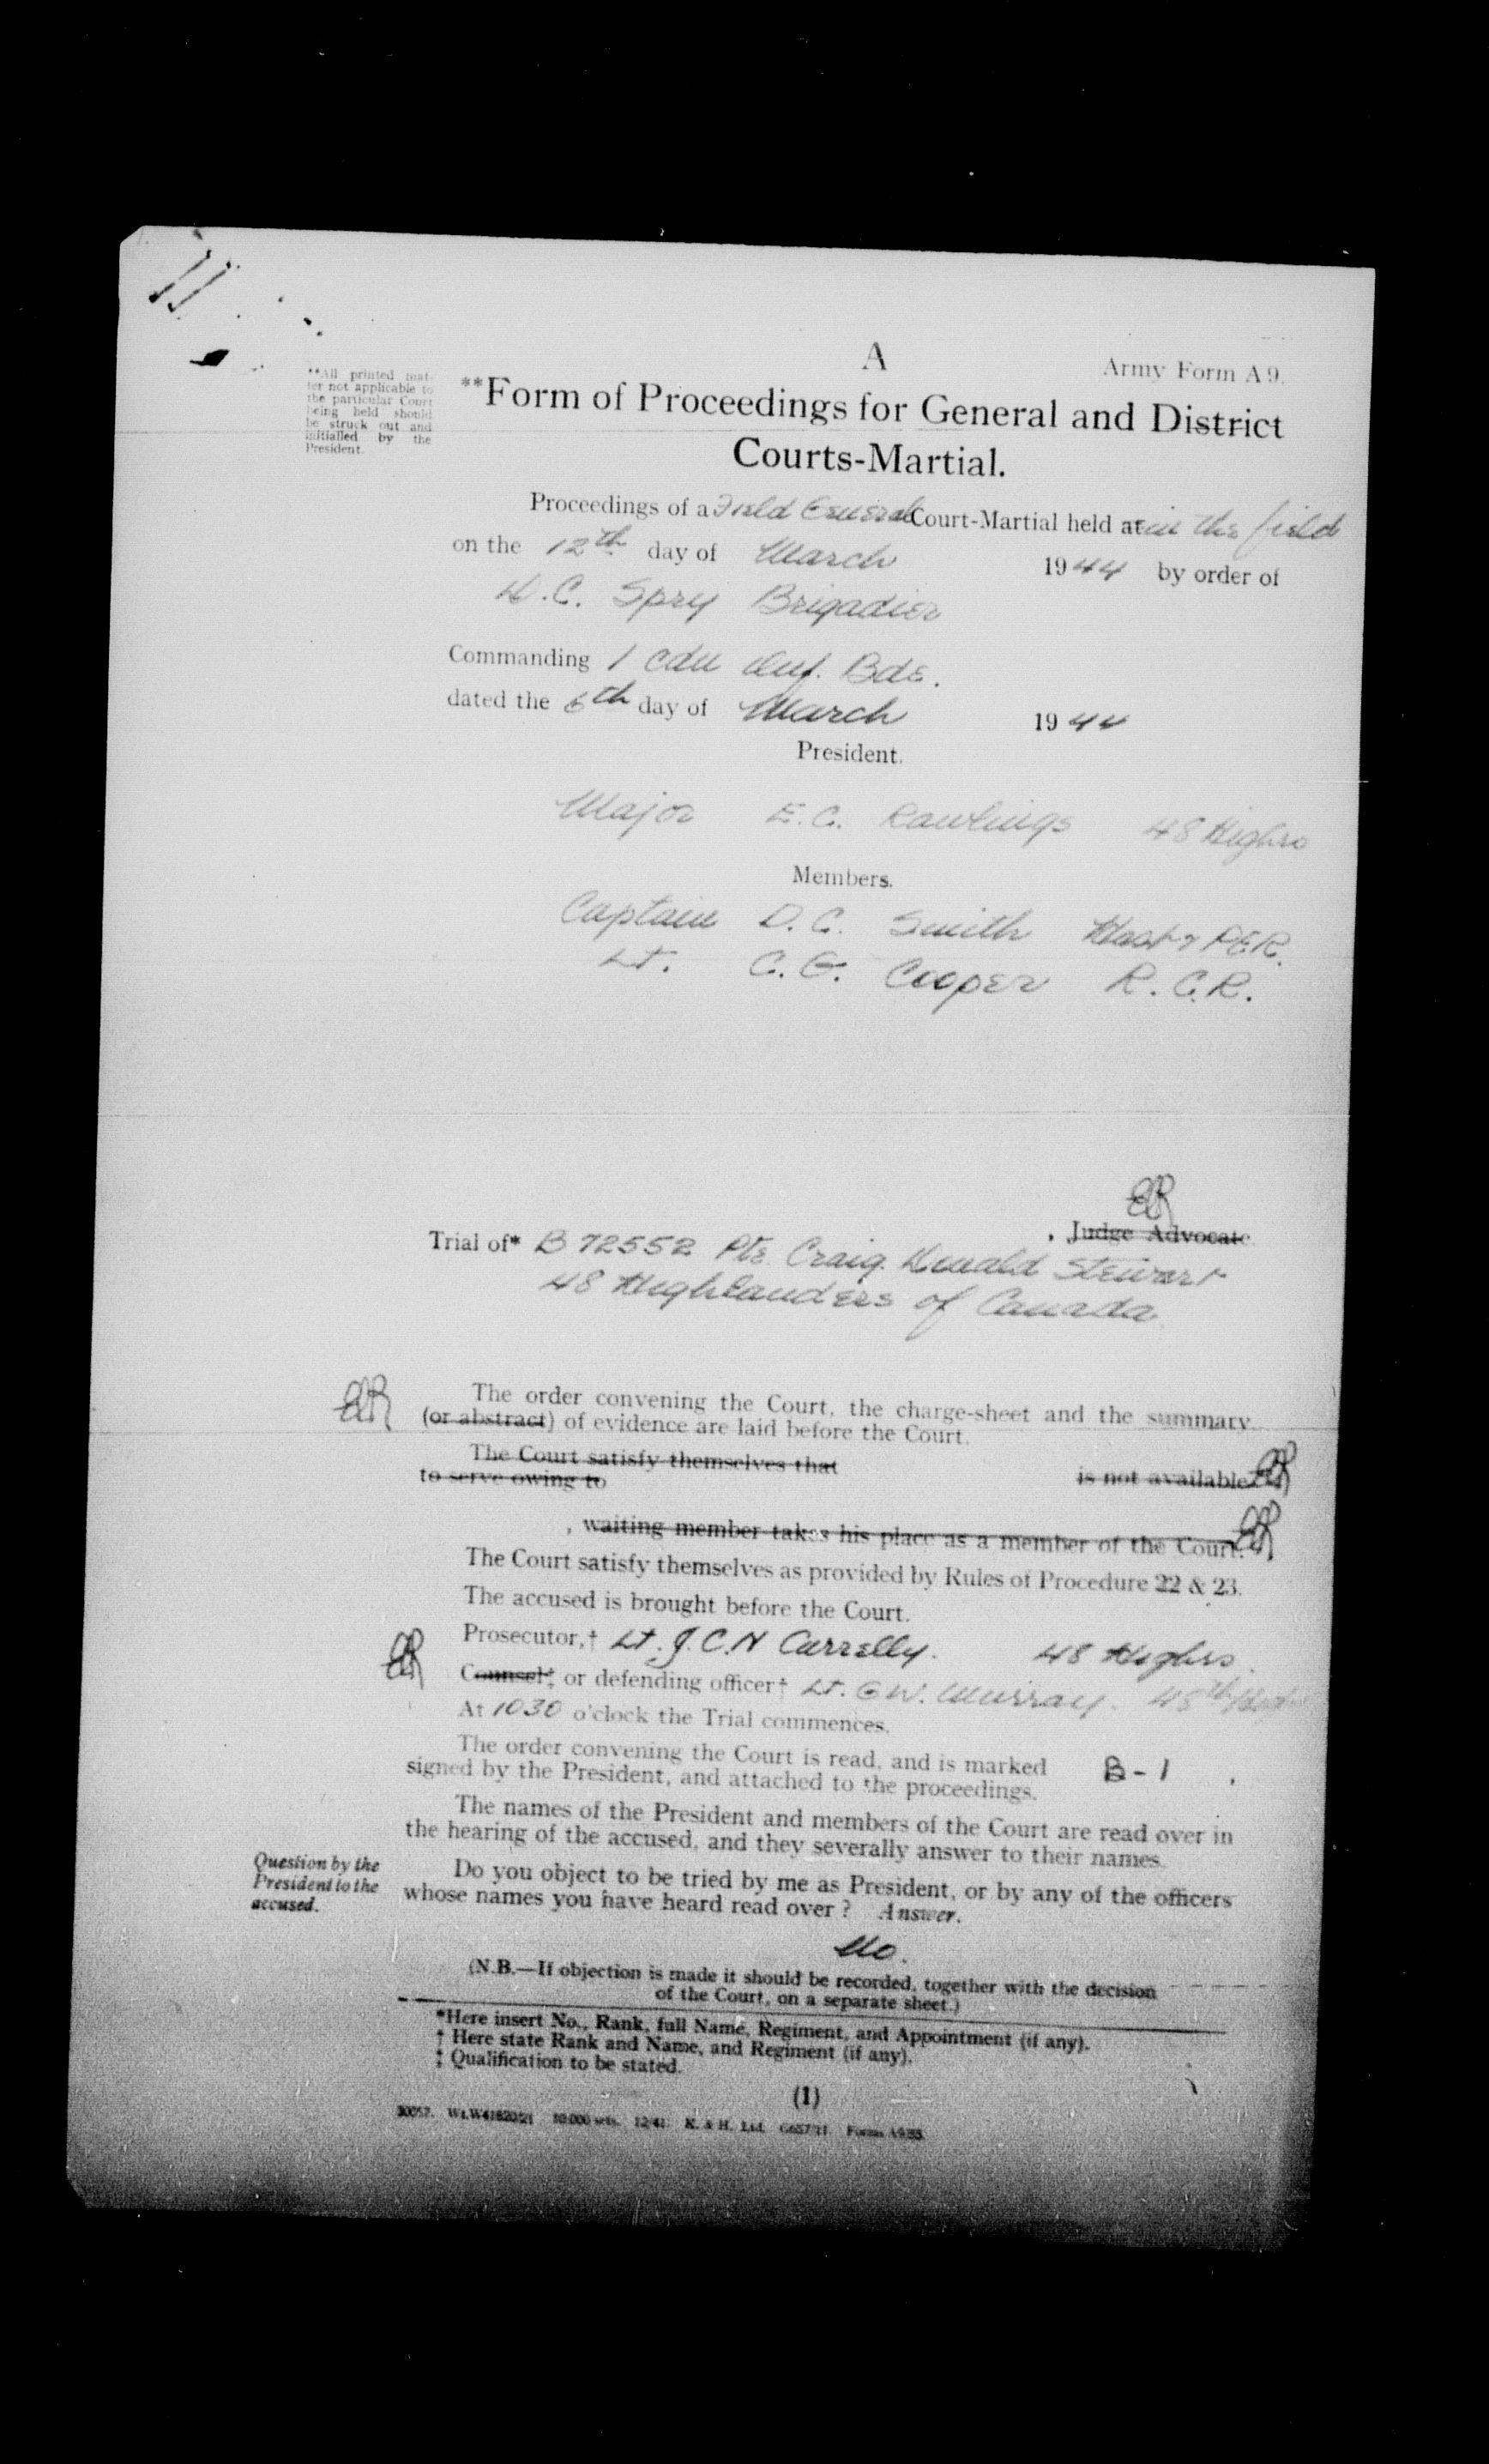 A
Army Form A 9.
**All printed mat-
ter not applicable to
the particular Court
being held should
be struck out and
initialled by the
President.
**Form of Proceedings for General and District
Courts-Martial.
Proceedings of a Field General Court-Martial held at in the field
on the 12th day of March 1944 by order of
D.C. Spry Brigadier
Commanding 1 Cdn Inf. Bde.
dated the 6th day of March 1944
President.
Major E.C. Rawlings 48 Highrs
Members.
Captain D.C. Smith Hast & PER.
Lt. C.G. Cooper R.C.R.
ER
, Judge Advocate
Trial of* B 72552 Pte. Craig. Donald Stewart
48 Highlanders of Canada
ER
The order convening the Court, the charge-sheet and the summary
(or abstract) of evidence are laid before the Court.
The Court satisfy themselves that is not available ER
to serve owing to
, waiting member takes his place as a member of the Court. ER
The Court satisfy themselves as provided by Rules of Procedure 22 & 23.
The accused is brought before the Court.
Prosecutor,† Lt. J.C.N Carrelly. 48 Highrs.
ER Counsel‡ or defending officer† Lt. G W. Murray. 48th
At 1030 o'clock the Trial commences.
The order convening the Court is read, and is marked B-1 ,
signed by the President, and attached to the proceedings.
The names of the President and members of the Court are read over in
the hearing of the accused, and they severally answer to their names.
Question by the
President to the
accused.
Do you object to be tried by me as President, or by any of the officers
whose names you have heard read over ? Answer.
No.
(N.B.—If objection is made it should be recorded, together with the decision
of the Court, on a separate sheet.)
*Here insert No., Rank, full Name, Regiment, and Appointment (if any).
† Here state Rank and Name, and Regiment (if any).
‡ Qualification to be stated.
(1)
12/41 K. & H. Ltd.